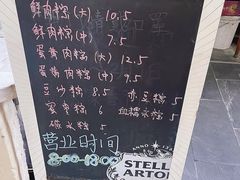 鲜肉粽(大) 10.5
鲜肉粽(中) 7.5
蛋黄肉粽(大) 12.5
蛋黄肉粽(中) 9.5
豆沙粽 8.5 赤豆粽 5
蜜枣粽 6 血糯米粽 5
碱水粽 5
营业时间
8:00-18:00
ANNO
STELL
ARTO